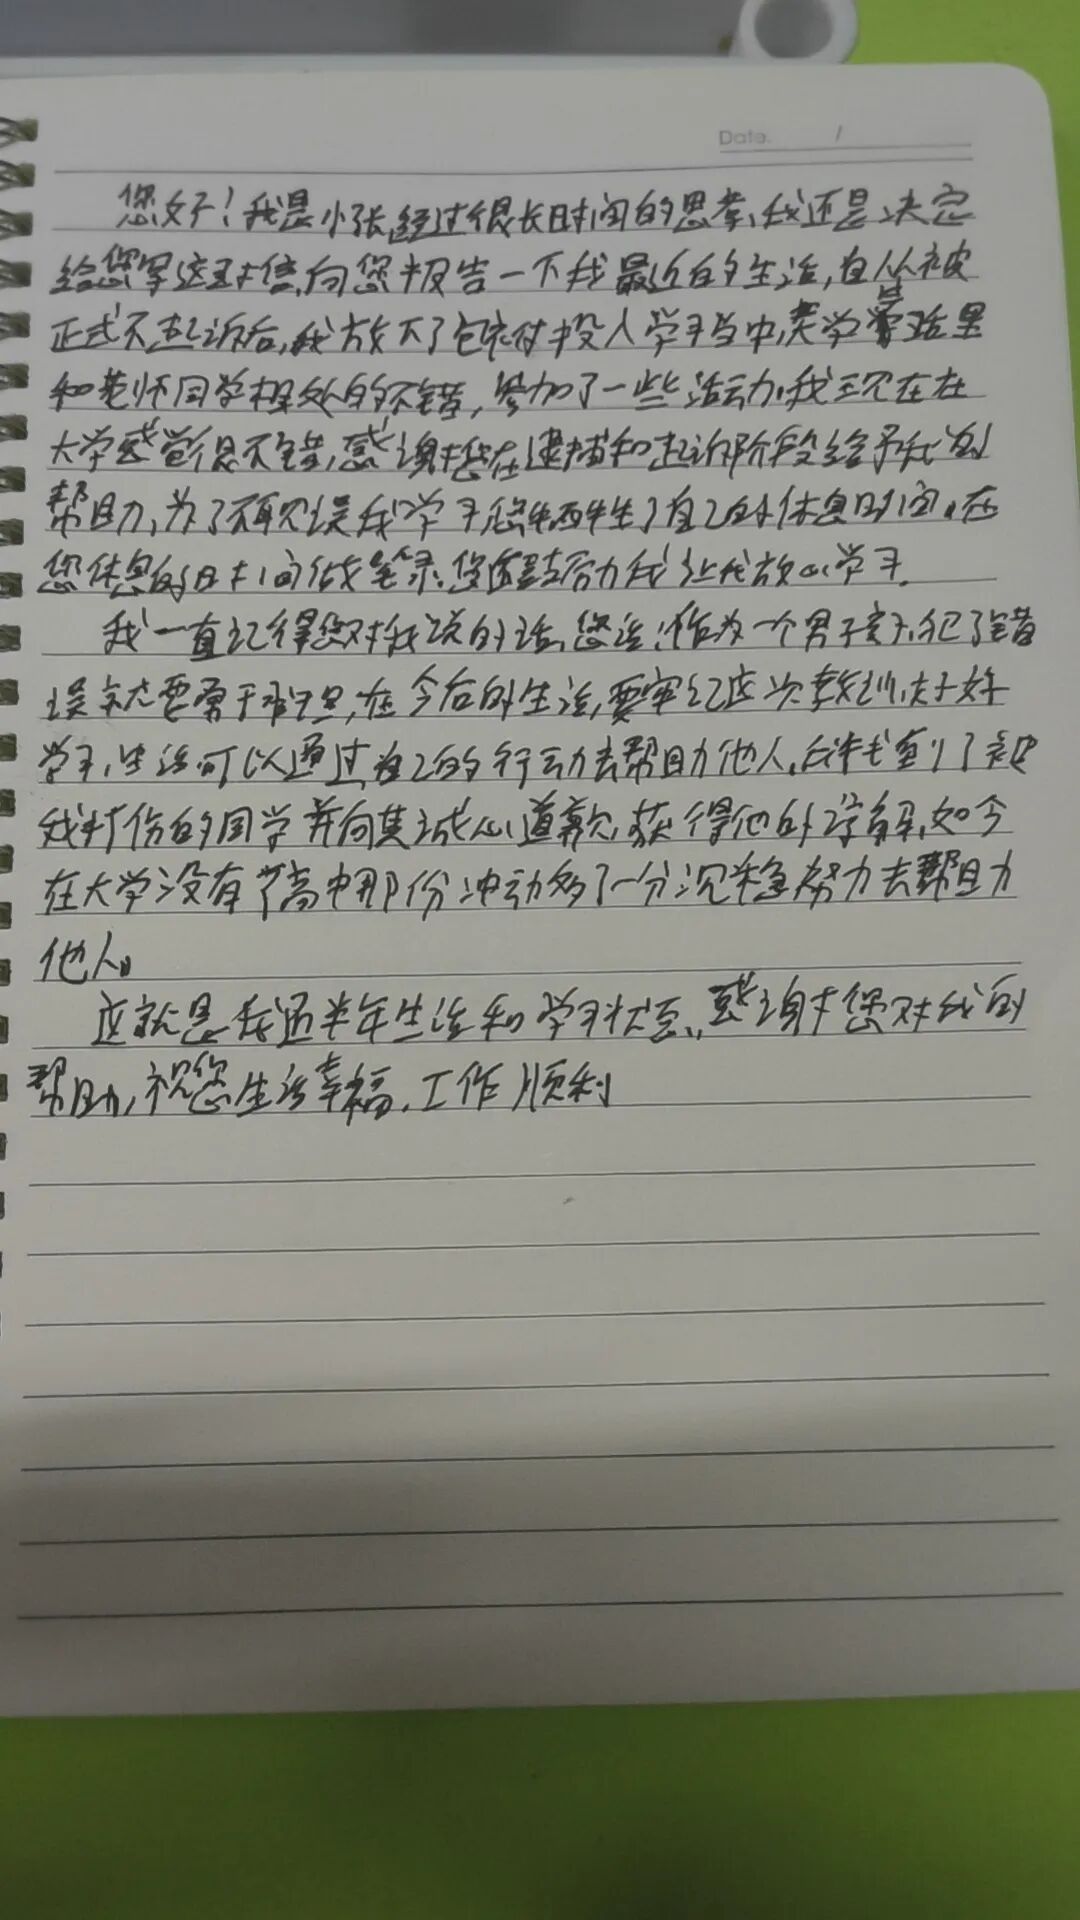 Date. /
您好！我是小张,经过很长时间的思考,我还是决定
给您写这封信,向您报告一下我最近的生活,自从被
正式不起诉后,我放下了包袱投入学习当中,大学生活里
和老师同学相处的不错,参加了一些活动,我现在在
大学感觉很不错,感谢您在逮捕和起诉阶段给予我的
帮助,为了不耽误我学习您牺牲了自己的休息时间,在
您休息的时间做笔录,您鼓励我让我放心学习.
我一直记得您对我说的话,您说:作为一个男子孩,犯了错
误就要勇于承担,在今后的生活,要牢记这次教训,好好
学习,生活可以通过自己的行动去帮助他人,我找到了被
我打伤的同学并向其诚心道歉,获得他的谅解,如今
在大学没有了高中那份冲动多了一分沉稳努力去帮助
他人。
这就是我近半年生活和学习状态,感谢您对我的
帮助,祝您生活幸福,工作顺利